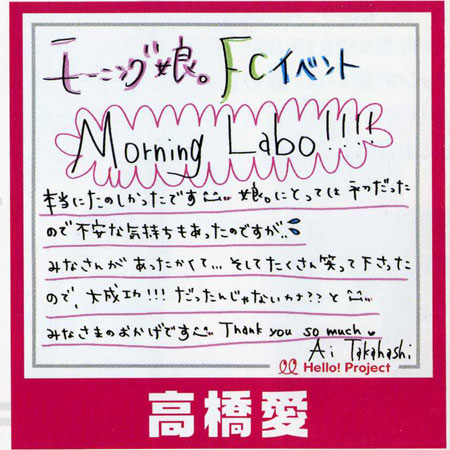 モーニング娘。FCイベント
Morning Labo!!!!
本当にたのしかったです 娘。にとっては初だった
ので不安な気持ちもあったのですが..
みなさんがあったかくて... そしてたくさん笑って下さった
ので、大成功!!! だったんじゃないカナ?? と
みなさまのおかげです Thank you so much
Ai Takahashi
Hello! Project
高橋愛